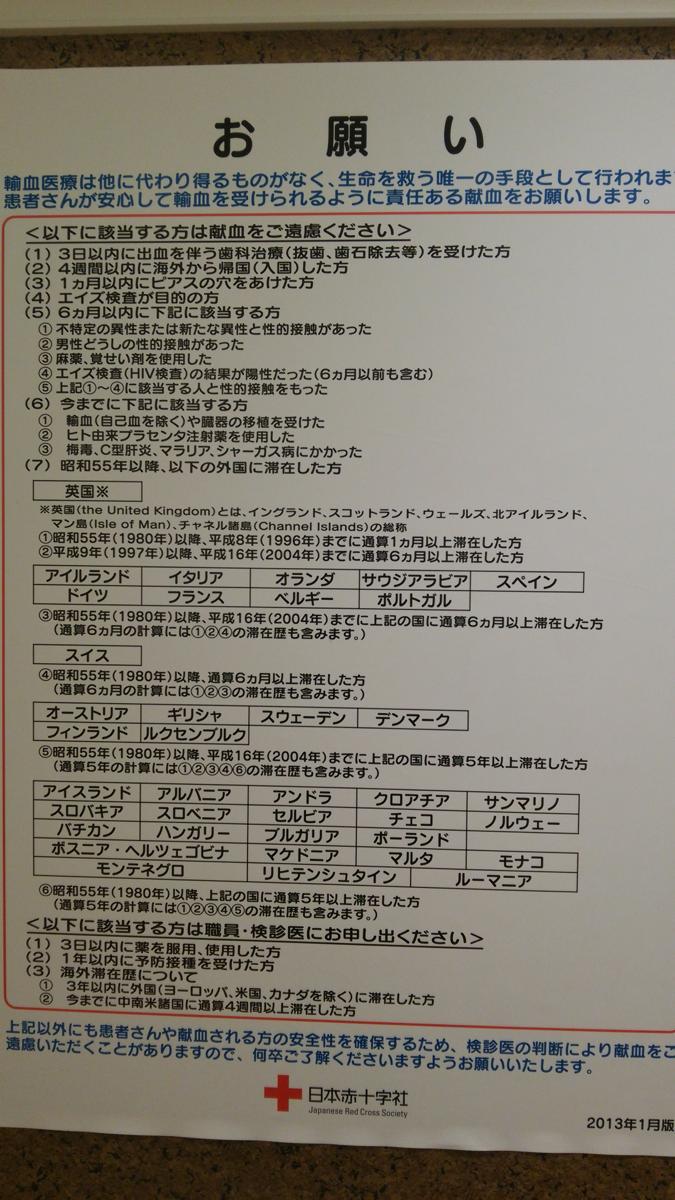 お願い
輸血医療は他に代わり得るものがなく、生命を救う唯一の手段として行われま
患者さんが安心して輸血を受けられるように責任ある献血をお願いします。
＜以下に該当する方は献血をご遠慮ください＞
(1) 3日以内に出血を伴う歯科治療(抜歯、歯石除去等)を受けた方
(2) 4週間以内に海外から帰国(入国)した方
(3) 1ヵ月以内にピアスの穴をあけた方
(4) エイズ検査が目的の方
(5) 6ヵ月以内に下記に該当する方
① 不特定の異性または新たな異性と性的接触があった
② 男性どうしの性的接触があった
③ 麻薬、覚せい剤を使用した
④ エイズ検査(HIV検査)の結果が陽性だった(6ヵ月以前も含む)
⑤ 上記①〜④に該当する人と性的接触をもった
(6) 今までに下記に該当する方
① 輸血(自己血を除く)や臓器の移植を受けた
② ヒト由来プラセンタ注射薬を使用した
③ 梅毒、C型肝炎、マラリア、シャーガス病にかかった
(7) 昭和55年以降、以下の外国に滞在した方
英国※
※英国(the United Kingdom)とは、イングランド、スコットランド、ウェールズ、北アイルランド、
マン島(Isle of Man)、チャネル諸島(Channel Islands)の総称
①昭和55年(1980年)以降、平成8年(1996年)までに通算1ヵ月以上滞在した方
②平成9年(1997年)以降、平成16年(2004年)までに通算6ヵ月以上滞在した方
アイルランド イタリア オランダ サウジアラビア スペイン
ドイツ フランス ベルギー ポルトガル
③昭和55年(1980年)以降、平成16年(2004年)までに上記の国に通算6ヵ月以上滞在した方
(通算6ヵ月の計算には①②④の滞在歴も含みます。)
スイス
④昭和55年(1980年)以降、通算6ヵ月以上滞在した方
(通算6ヵ月の計算には①②③の滞在歴も含みます。)
オーストリア ギリシャ スウェーデン デンマーク
フィンランド ルクセンブルク
⑤昭和55年(1980年)以降、平成16年(2004年)までに上記の国に通算5年以上滞在した方
(通算5年の計算には①②③④⑥の滞在歴も含みます。)
アイスランド アルバニア アンドラ クロアチア サンマリノ
スロバキア スロベニア セルビア チェコ ノルウェー
バチカン ハンガリー ブルガリア ポーランド
ボスニア・ヘルツェゴビナ マケドニア マルタ モナコ
モンテネグロ リヒテンシュタイン ルーマニア
⑥昭和55年(1980年)以降、上記の国に通算5年以上滞在した方
(通算5年の計算には①②③④⑤の滞在歴も含みます。)
＜以下に該当する方は職員・検診医にお申し出ください＞
(1) 3日以内に薬を服用、使用した方
(2) 1年以内に予防接種を受けた方
(3) 海外滞在歴について
① 3年以内に外国(ヨーロッパ、米国、カナダを除く)に滞在した方
② 今までに中南米諸国に通算4週間以上滞在した方
上記以外にも患者さんや献血される方の安全性を確保するため、検診医の判断により献血をご
遠慮いただくことがありますので、何卒ご了解くださいますようお願いいたします。
日本赤十字社
Japanese Red Cross Society
2013年1月版